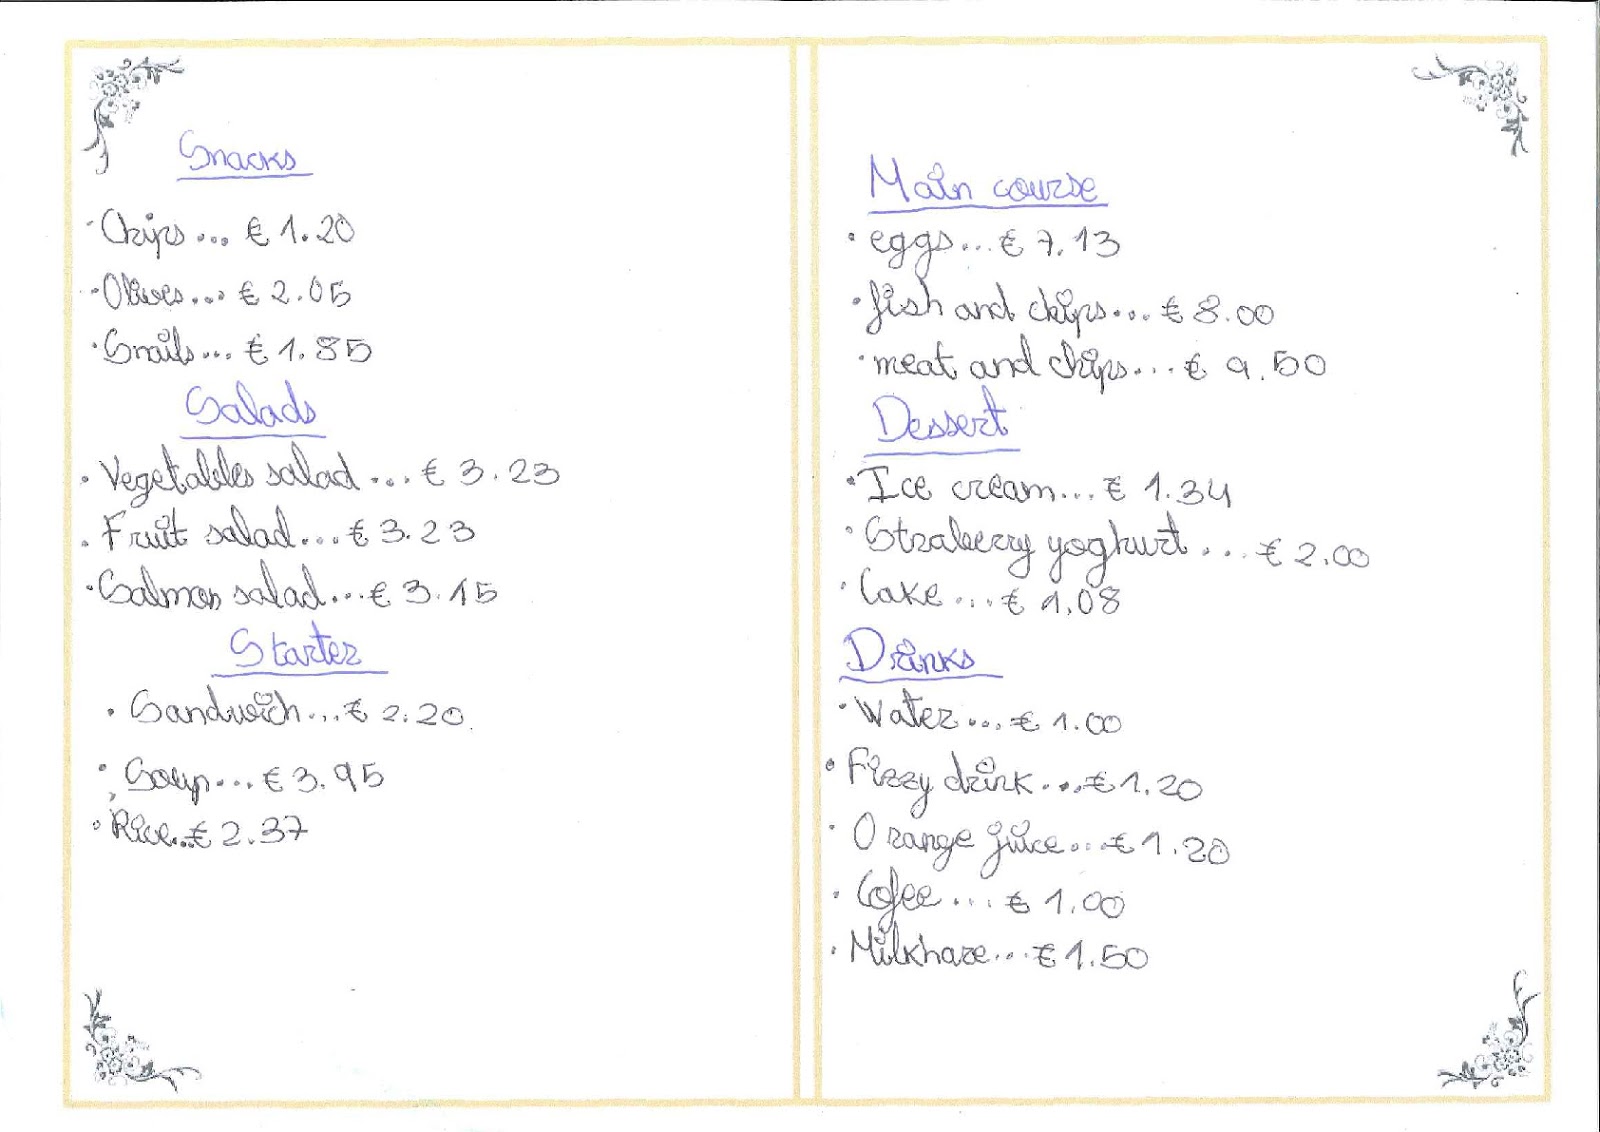 Snacks
· Chips... € 1.20
· Olives... € 2.05
· Snails... € 1.85
Salads
· Vegetables salad ... € 3.23
· Fruit salad... € 3.23
· Salmon salad... € 3.15
Starter
· Sandwich... € 2.20
· Soup... € 3.95
· Rice... € 2.37
Main course
· eggs... € 7.13
· fish and chips... € 8.00
· meat and chips... € 9.50
Dessert
· Ice cream... € 1.34
· Straberry yoghurt ... € 2.00
· Cake ... € 1.08
Drinks
· Water ... € 1.00
· Fizzy drink ... € 1.20
· Orange juice... € 1.20
· Cofee ... € 1.00
· Milkhare... € 1.50